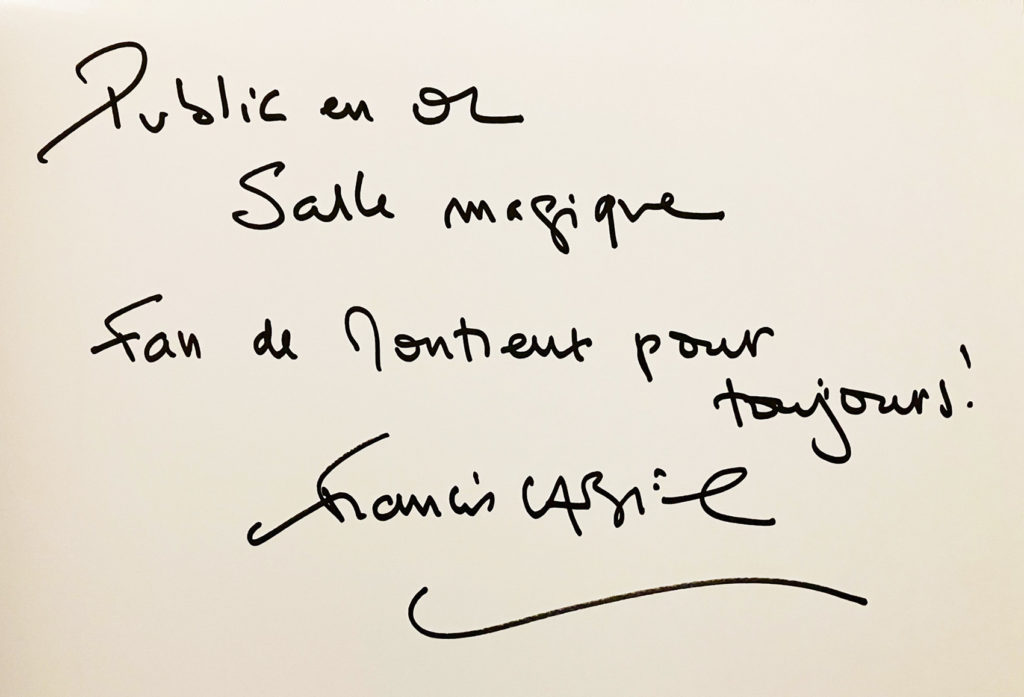 Public en or
Salle magique
Fan de Montreux pour
toujours!
Francis CABREL